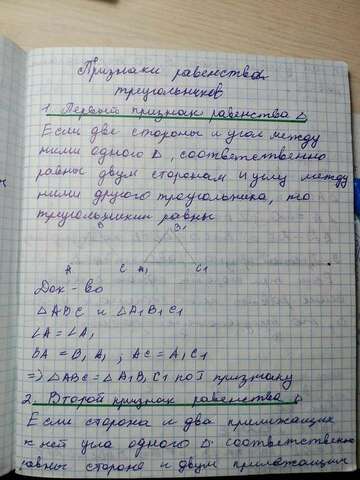 Признаки равенства
треугольников
1. Первый признак равенства Δ
Если две стороны и угол между
ними одного Δ, соответственно
равны двум сторонам и углу между
ними другого треугольника, то
треугольники равны
B B1
A C A1 C1
Док-во
ΔABC и ΔA1B1C1
∠A = ∠A1
BA = B1A1, AC = A1C1
=> ΔABC = ΔA1B1C1 по I признаку
2. Второй признак равенства Δ
Если сторона и два прилежащих
к ней угла одного Δ соответственно
равны стороне и двум прилежащим